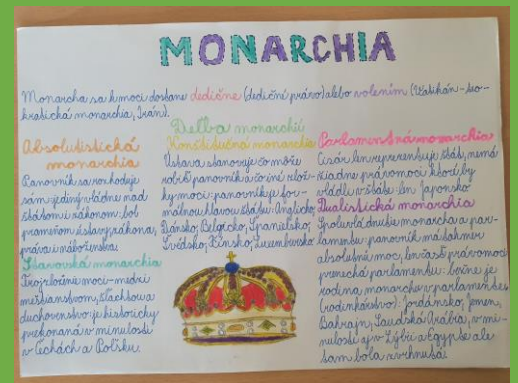 MONARCHIA
Monarcha sa k moci dostane dedične (dedičné právo) alebo volením (Vatikán-teo-
kratická monarchia, Irán).
Deľba monarchií
Absolutistická
monarchia
Panovník sa rozhoduje
sám-jediný vládne nad
štátom i zákonom: bol
prameňom ústavy, zákona,
práva i náboženstva.
Stavovská monarchia
Trojrozloženie moci-medzi
mešťianstvom, šľachtou a
duchovenstvom: je historicky
prekonaná v minulosti
v Čechách a Poľsku.
Konštitučná monarchia
Ústava stanovuje čo môže
robiť panovník a čo iné zlož-
ky moci: panovník je for-
málnou hlavou štátu: Anglicko,
Dánsko, Belgicko, Španielsko,
Švédsko, Nórsko, Luxembursko
Parlamentná monarchia
Cisár len reprezentuje štát, nemá
žiadne právomoci ktoré by
vládli v štáte: len Japonsko
Dualistická monarchia
Spoluvládnutie monarcha a par-
lamentu: panovník má takmer
absolútnu moc, len časť právomocí
prenechá parlamentu: bežne je
rodina monarchu v parlamente
(rodinkárstvo). Jordánsko, Jemen,
Bahrajn, Saudská Arábia, v mi-
nulosti aj v Líbyi a Egypte ale
tam bola zvrhnutá.